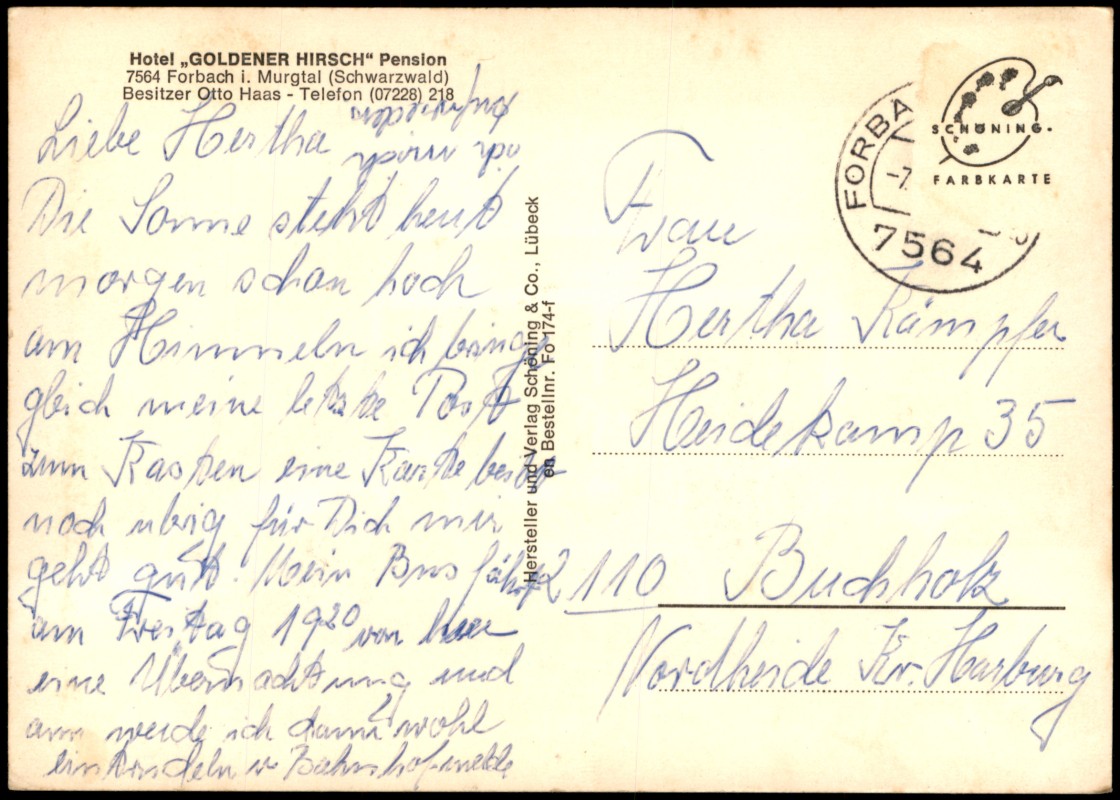 Hotel „GOLDENER HIRSCH“ Pension
7564 Forbach i. Murgtal (Schwarzwald)
Besitzer Otto Haas - Telefon (07228) 218
Liebe Hertha
Die Sonne steht heut
morgen schon hoch
am Himmeln ich bringe
gleich meine letzte Post
zum Kasten eine Karte
noch übrig für Dich mir
geht gutt. Mein Bus fährt
am Freitag 19²⁰ von hier
eine Übernachtung und
werde ich dann wohl
eintrudeln v Bahnhof melde
ich mich
zufrieden
Hersteller und Verlag Schöning & Co., Lübeck
Bestellnr. Fo 174-f
FORBA
-7.
7564
SCHÖNING·
FARBKARTE
Frau
Hertha Kämpfer
Heidekamp 35
2110 Buchholz
Nordheide Kr. Harburg